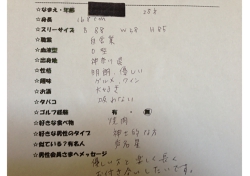 ☆なまえ・年齢 25才
☆身長 167cm
☆スリーサイズ B 88 W 58 H 85
☆職業 自営業
☆血液型 O型
☆出身地 神奈川
☆性格 明朗、優しい
☆趣味 グルメ、ワイン
☆お酒 大好き
☆タバコ 吸わない
☆ゴルフ経験 有・無
☆好きな食べ物 焼肉
☆好きな男性のタイプ 紳士的な方
☆似ている?有名人
☆男性会員さまへメッセージ
優しい方と楽しく長く
お付き合いしたいです。